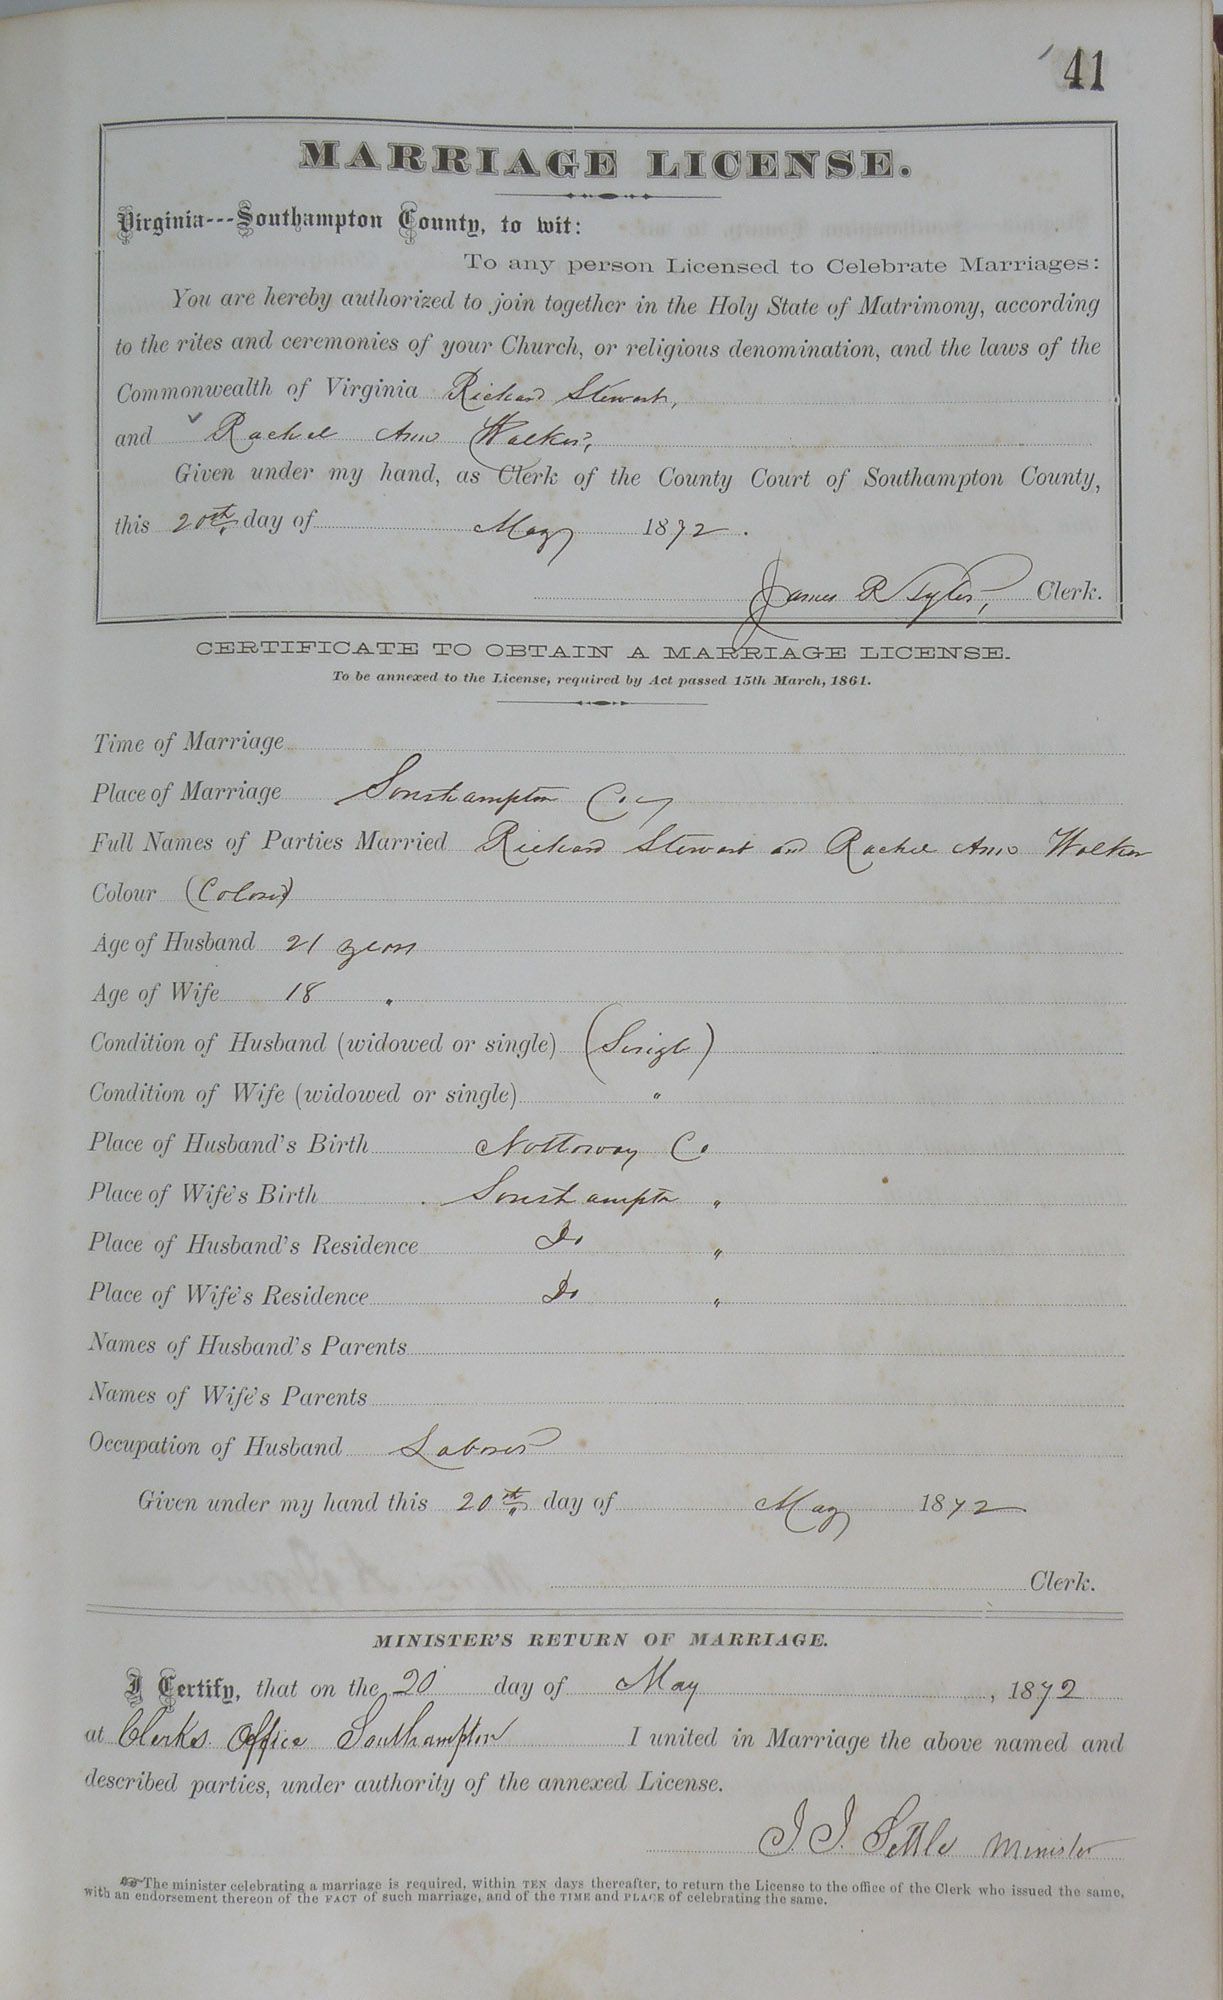 41
MARRIAGE LICENSE.
Virginia---Southampton County, to wit:
To any person Licensed to Celebrate Marriages:
You are hereby authorized to join together in the Holy State of Matrimony, according
to the rites and ceremonies of your Church, or religious denomination, and the laws of the
Commonwealth of Virginia Richard Stewart,
and Rachel Ann Walker,
Given under my hand, as Clerk of the County Court of Southampton County,
this 20th day of May 1872.
James R Tyler, Clerk.
CERTIFICATE TO OBTAIN A MARRIAGE LICENSE.
To be annexed to the License, required by Act passed 15th March, 1861.
Time of Marriage
Place of Marriage Southampton Co.
Full Names of Parties Married Richard Stewart and Rachel Ann Walker
Colour (Colored)
Age of Husband 21 years
Age of Wife 18 "
Condition of Husband (widowed or single) (Single)
Condition of Wife (widowed or single) "
Place of Husband's Birth Nottoway Co
Place of Wife's Birth Southampton "
Place of Husband's Residence Do "
Place of Wife's Residence Do "
Names of Husband's Parents
Names of Wife's Parents
Occupation of Husband Laborer
Given under my hand this 20th day of May 1872
Clerk.
MINISTER'S RETURN OF MARRIAGE.
I Certify, that on the 20 day of May, 1872
at Clerks Office Southampton I united in Marriage the above named and
described parties, under authority of the annexed License.
J. J. Settle Minister
The minister celebrating a marriage is required, within TEN days thereafter, to return the License to the office of the Clerk who issued the same,
with an endorsement thereon of the FACT of such marriage, and of the TIME and PLACE of celebrating the same.